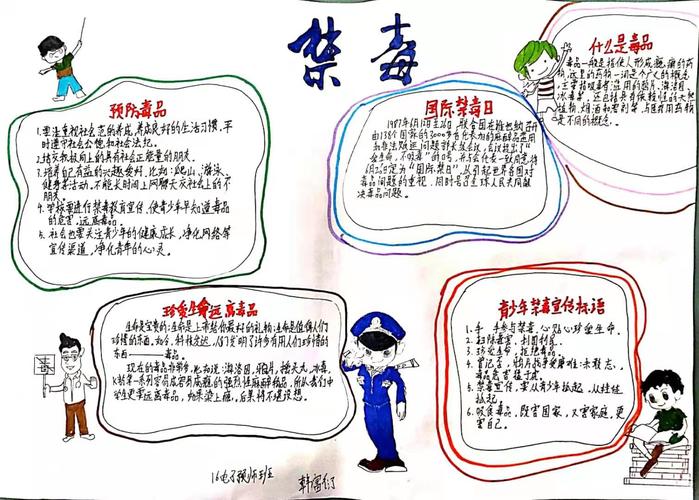 禁毒
预防毒品
1.要注重规社会范的养成,养成良好的生活习惯,平
时遵守社会公德和社会法纪。
2.结交积极向上的具有社会正能量的朋友。
3.培养自己有益的兴趣爱好,比如:爬山、游泳、
健身等活动,不能长时间上网聊天交社会上的不
朋友。
4.学校要进行禁毒教育宣传,使青少年早知道毒品
的危害,远离毒品。
5.社会也要关注青少年的健康成长,净化网络等
宣传渠道,净化青年的心灵。
国际禁毒日
1987年6月12日至26日,联合国在维也纳召开
由138个国家的3000多名代表参加的麻醉品滥用
和非法贩运问题部长级会议,会议提出了“
爱生命,不吸毒”的口号,并与会代表一致同意将
6月26日定为“国际禁日”,以引起世界各国对
毒品问题的重视,同时号召全球人民共同解
决毒品问题。
什么是毒品
毒品一般是指使人形成瘾癖的药
物,这里的药物一词是个广义的概念,
主要指吸毒者滥用的鸦片、海洛因、
冰毒等,还包括具有依赖性的天然
植物、烟酒和溶剂等,与医用药物
是不同的概念。
珍爱生命远离毒品
生命是宝贵的;生命是上帝给我最好的礼物;生命是值得人们
珍惜的东西。如今,科技发达,人们发明了许多有用人们珍惜的
东西——毒品。
现在的毒品有很多,比如说:海洛因、鸦片、摇头丸、冰毒、
青少年禁毒宣传标语
1.手手参与禁毒,心贴心珍爱生命。
2.扫除毒害,利国利民。
3.珍爱生命,拒绝毒品。
4.曾记否,鸦片战争受屡难;未敢忘,
毒品危害猛于虎。
5.禁毒宣传,要从青少年抓起,从娃娃
抓起。
6.吸食毒品,既害国家,又害家庭,更
害自己。
禁毒